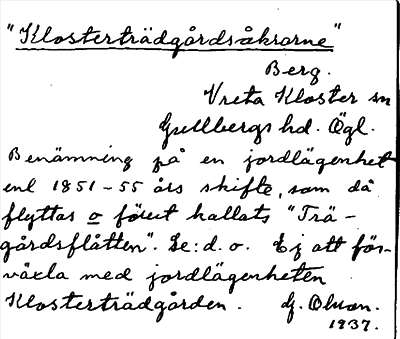 "Klosterträdgårdsåkrarne"
Berg.
Vreta Kloster sn
Gullbergs hd. Ögl.
Benämning på en jordlägenhet
enl 1851-55 års skifte, som då
flyttas o förut kallats "Trä-
gårdsflätten". Se: d. o. Ej att för-
växla med jordlägenheten
Klosterträdgården. G. Olson.
1937.